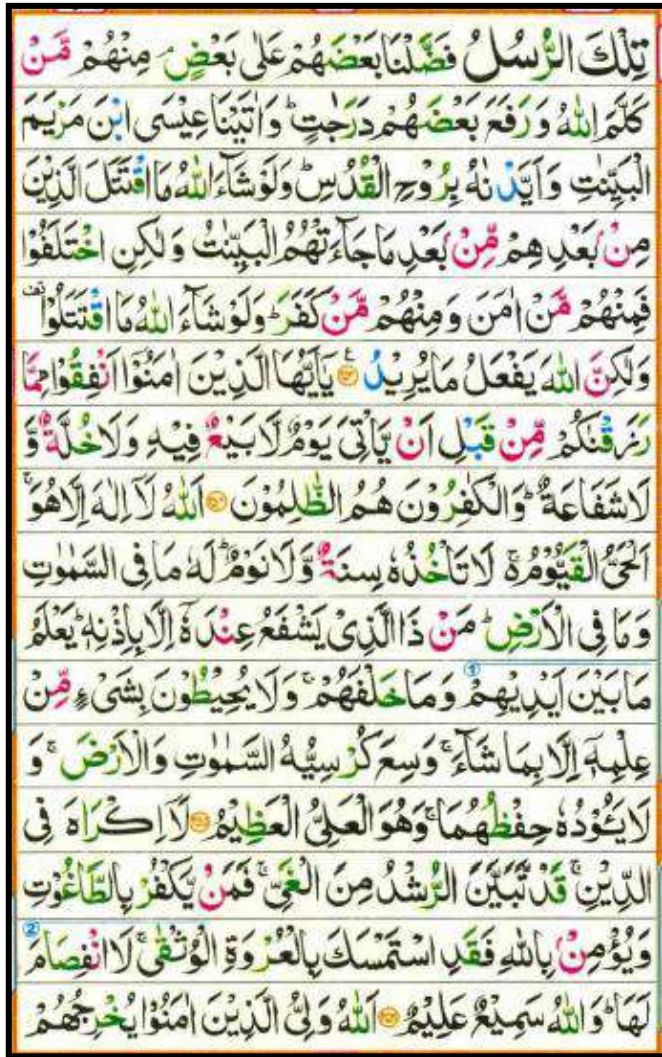 تِلْكَ الرُّسُلُ فَضَّلْنَا بَعْضَهُمْ عَلٰى بَعْضٍ ۘ مِنْهُمْ مَّنْ
كَلَّمَ اللّٰهُ وَ رَفَعَ بَعْضَهُمْ دَرَجٰتٍ ؕ وَ اٰتَيْنَا عِيْسَى ابْنَ مَرْيَمَ
الْبَيِّنٰتِ وَ اَيَّدْنٰهُ بِرُوْحِ الْقُدُسِ ؕ وَ لَوْ شَآءَ اللّٰهُ مَا اقْتَتَلَ الَّذِيْنَ
مِنْۢ بَعْدِهِمْ مِّنْۢ بَعْدِ مَا جَآءَتْهُمُ الْبَيِّنٰتُ وَ لٰكِنِ اخْتَلَفُوْا
فَمِنْهُمْ مَّنْ اٰمَنَ وَ مِنْهُمْ مَّنْ كَفَرَ ؕ وَ لَوْ شَآءَ اللّٰهُ مَا اقْتَتَلُوْا ۫
وَ لٰكِنَّ اللّٰهَ يَفْعَلُ مَا يُرِيْدُ ۝ يٰۤاَيُّهَا الَّذِيْنَ اٰمَنُوْۤا اَنْفِقُوْا مِمَّا
رَزَقْنٰكُمْ مِّنْ قَبْلِ اَنْ يَّاْتِيَ يَوْمٌ لَّا بَيْعٌ فِيْهِ وَ لَا خُلَّةٌ وَّ
لَا شَفَاعَةٌ ؕ وَ الْكٰفِرُوْنَ هُمُ الظّٰلِمُوْنَ ۝ اَللّٰهُ لَاۤ اِلٰهَ اِلَّا هُوَ ۚ
اَلْحَيُّ الْقَيُّوْمُ ۚ۬ لَا تَاْخُذُهٗ سِنَةٌ وَّ لَا نَوْمٌ ؕ لَهٗ مَا فِي السَّمٰوٰتِ
وَ مَا فِي الْاَرْضِ ؕ مَنْ ذَا الَّذِيْ يَشْفَعُ عِنْدَهٗۤ اِلَّا بِاِذْنِهٖ ؕ يَعْلَمُ
مَا بَيْنَ اَيْدِيْهِمْ وَ مَا خَلْفَهُمْ ۚ وَ لَا يُحِيْطُوْنَ بِشَيْءٍ مِّنْ
عِلْمِهٖۤ اِلَّا بِمَا شَآءَ ۚ وَسِعَ كُرْسِيُّهُ السَّمٰوٰتِ وَ الْاَرْضَ ۚ وَ
لَا يَـُٔوْدُهٗ حِفْظُهُمَا ۚ وَ هُوَ الْعَلِيُّ الْعَظِيْمُ ۝ لَاۤ اِكْرَاهَ فِي
الدِّيْنِ ۙ قَدْ تَّبَيَّنَ الرُّشْدُ مِنَ الْغَيِّ ۚ فَمَنْ يَّكْفُرْ بِالطَّاغُوْتِ
وَ يُؤْمِنْۢ بِاللّٰهِ فَقَدِ اسْتَمْسَكَ بِالْعُرْوَةِ الْوُثْقٰى ۗ لَا انْفِصَامَ
لَهَا ؕ وَ اللّٰهُ سَمِيْعٌ عَلِيْمٌ ۝ اَللّٰهُ وَلِيُّ الَّذِيْنَ اٰمَنُوْا يُخْرِجُهُمْ